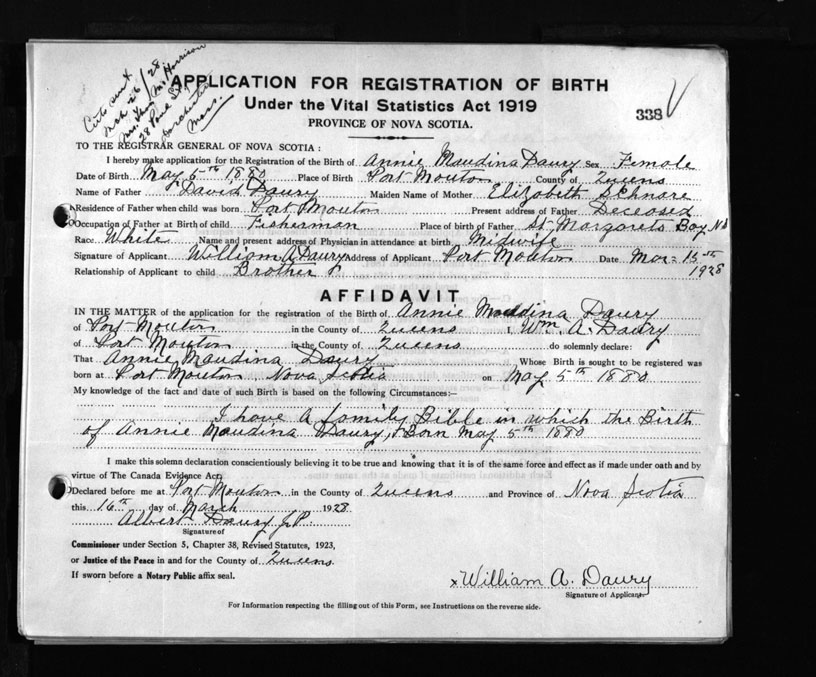 Cert. sent
Mch 26/28
Mrs. Harrison
28
Dorchester
Mass.
APPLICATION FOR REGISTRATION OF BIRTH
Under the Vital Statistics Act 1919
PROVINCE OF NOVA SCOTIA.
338
TO THE REGISTRAR GENERAL OF NOVA SCOTIA:
I hereby make application for the Registration of the Birth of Annie Maudina Daury Sex Female
Date of Birth May 5th 1880 Place of Birth Port Mouton County of Queens
Name of Father David Daury Maiden Name of Mother Elizabeth Schnare
Residence of Father when child was born Port Mouton Present address of Father Deceased
Occupation of Father at Birth of child Fisherman Place of birth of Father St Margarets Bay NS
Race White Name and present address of Physician in attendance at birth Midwife
Signature of Applicant William A Daury Address of Applicant Port Mouton Date Mar 15th
Relationship of Applicant to child Brother 1928
AFFIDAVIT
IN THE MATTER of the application for the registration of the Birth of Annie Maudina Daury
of Port Mouton in the County of Queens I Wm. A. Daury
of Port Mouton in the County of Queens do solemnly declare:
That Annie Maudina Daury Whose Birth is sought to be registered was
born at Port Mouton Nova Scotia on May 5th 1880
My knowledge of the fact and date of such Birth is based on the following Circumstances:—
I have a family Bible in which the Birth
of Annie Maudina Daury, Born May 5th 1880
I make this solemn declaration conscientiously believing it to be true and knowing that it is of the same force and effect as if made under oath and by
virtue of The Canada Evidence Act.
Declared before me at Port Mouton in the County of Queens and Province of Nova Scotia
this 16th day of March 1928
Albert Daury J.P.
Signature of
Commissioner under Section 5, Chapter 38, Revised Statutes, 1923,
or Justice of the Peace in and for the County of Queens
If sworn before a Notary Public affix seal.
x William A. Daury
Signature of Applicant.
For Information respecting the filling out of this Form, see Instructions on the reverse side.